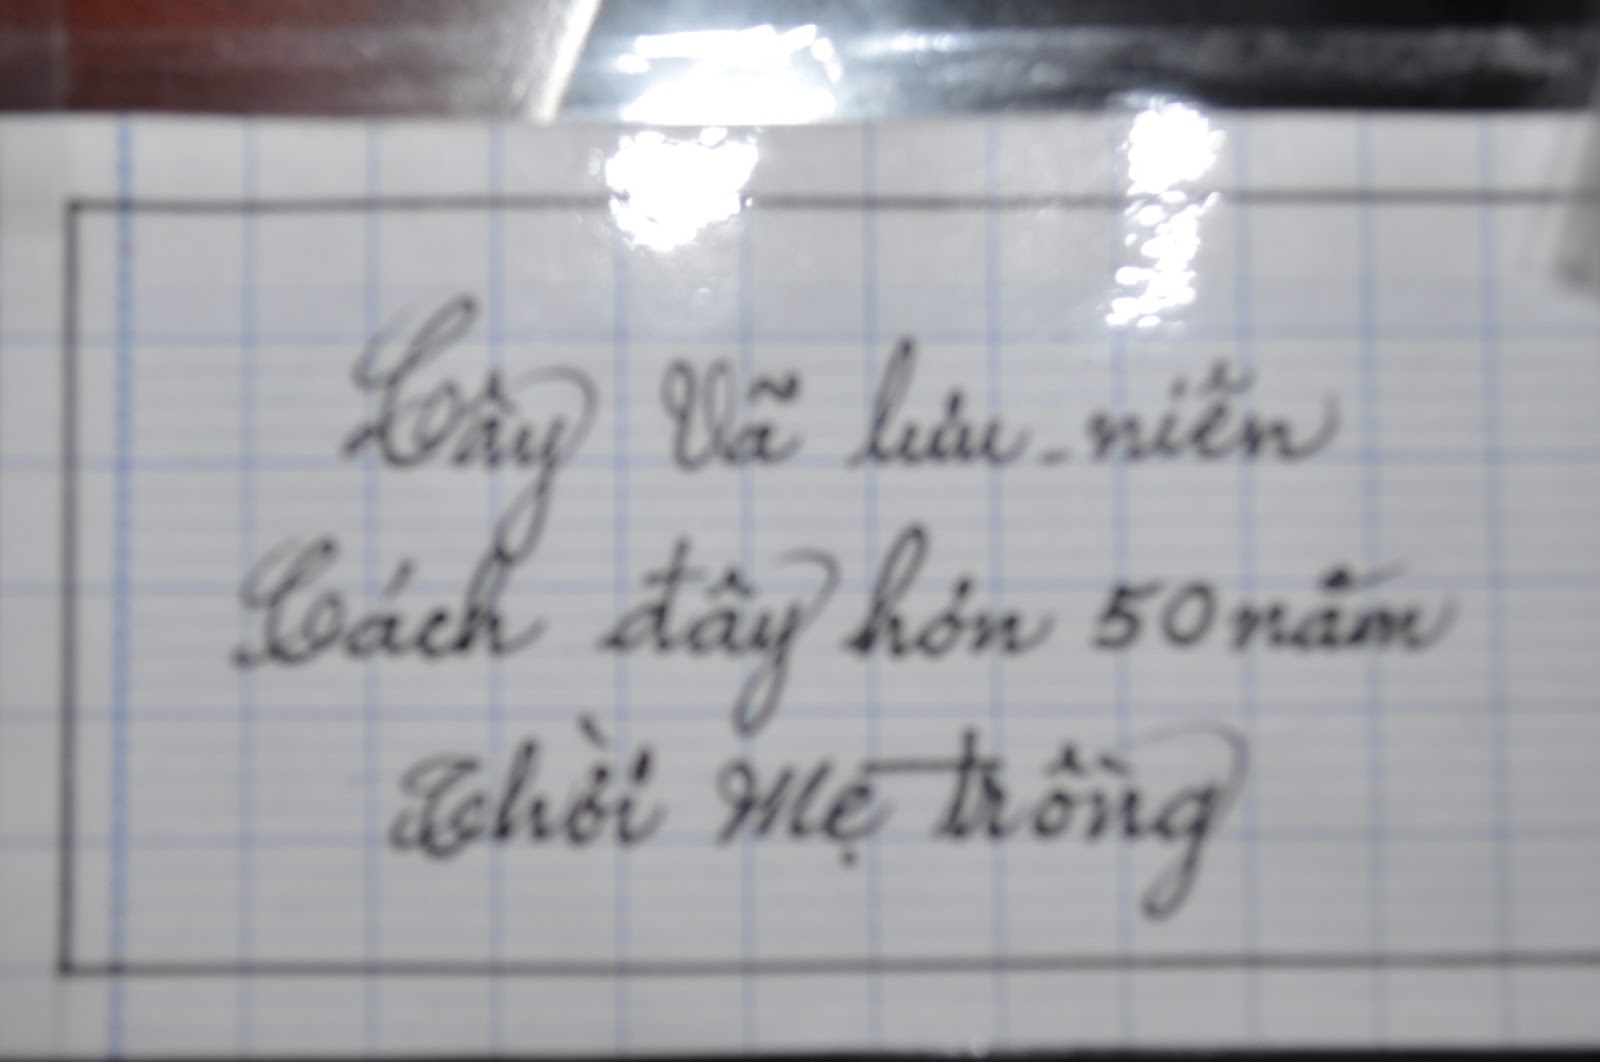 Cây Vã lưu-niễn
Cách đây hơn 50 năm
Thời Mẹ trồng